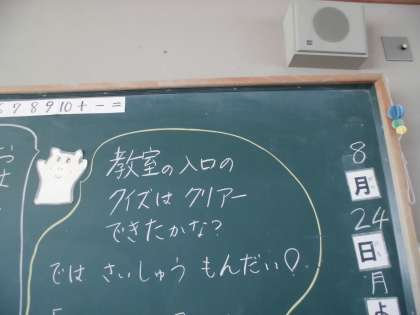 6 7 8 9 10 + - =
教室の入口の
クイズは クリアー
できたかな?
では さいしゅう もんだい♡。
8
月
24
日
月
よ